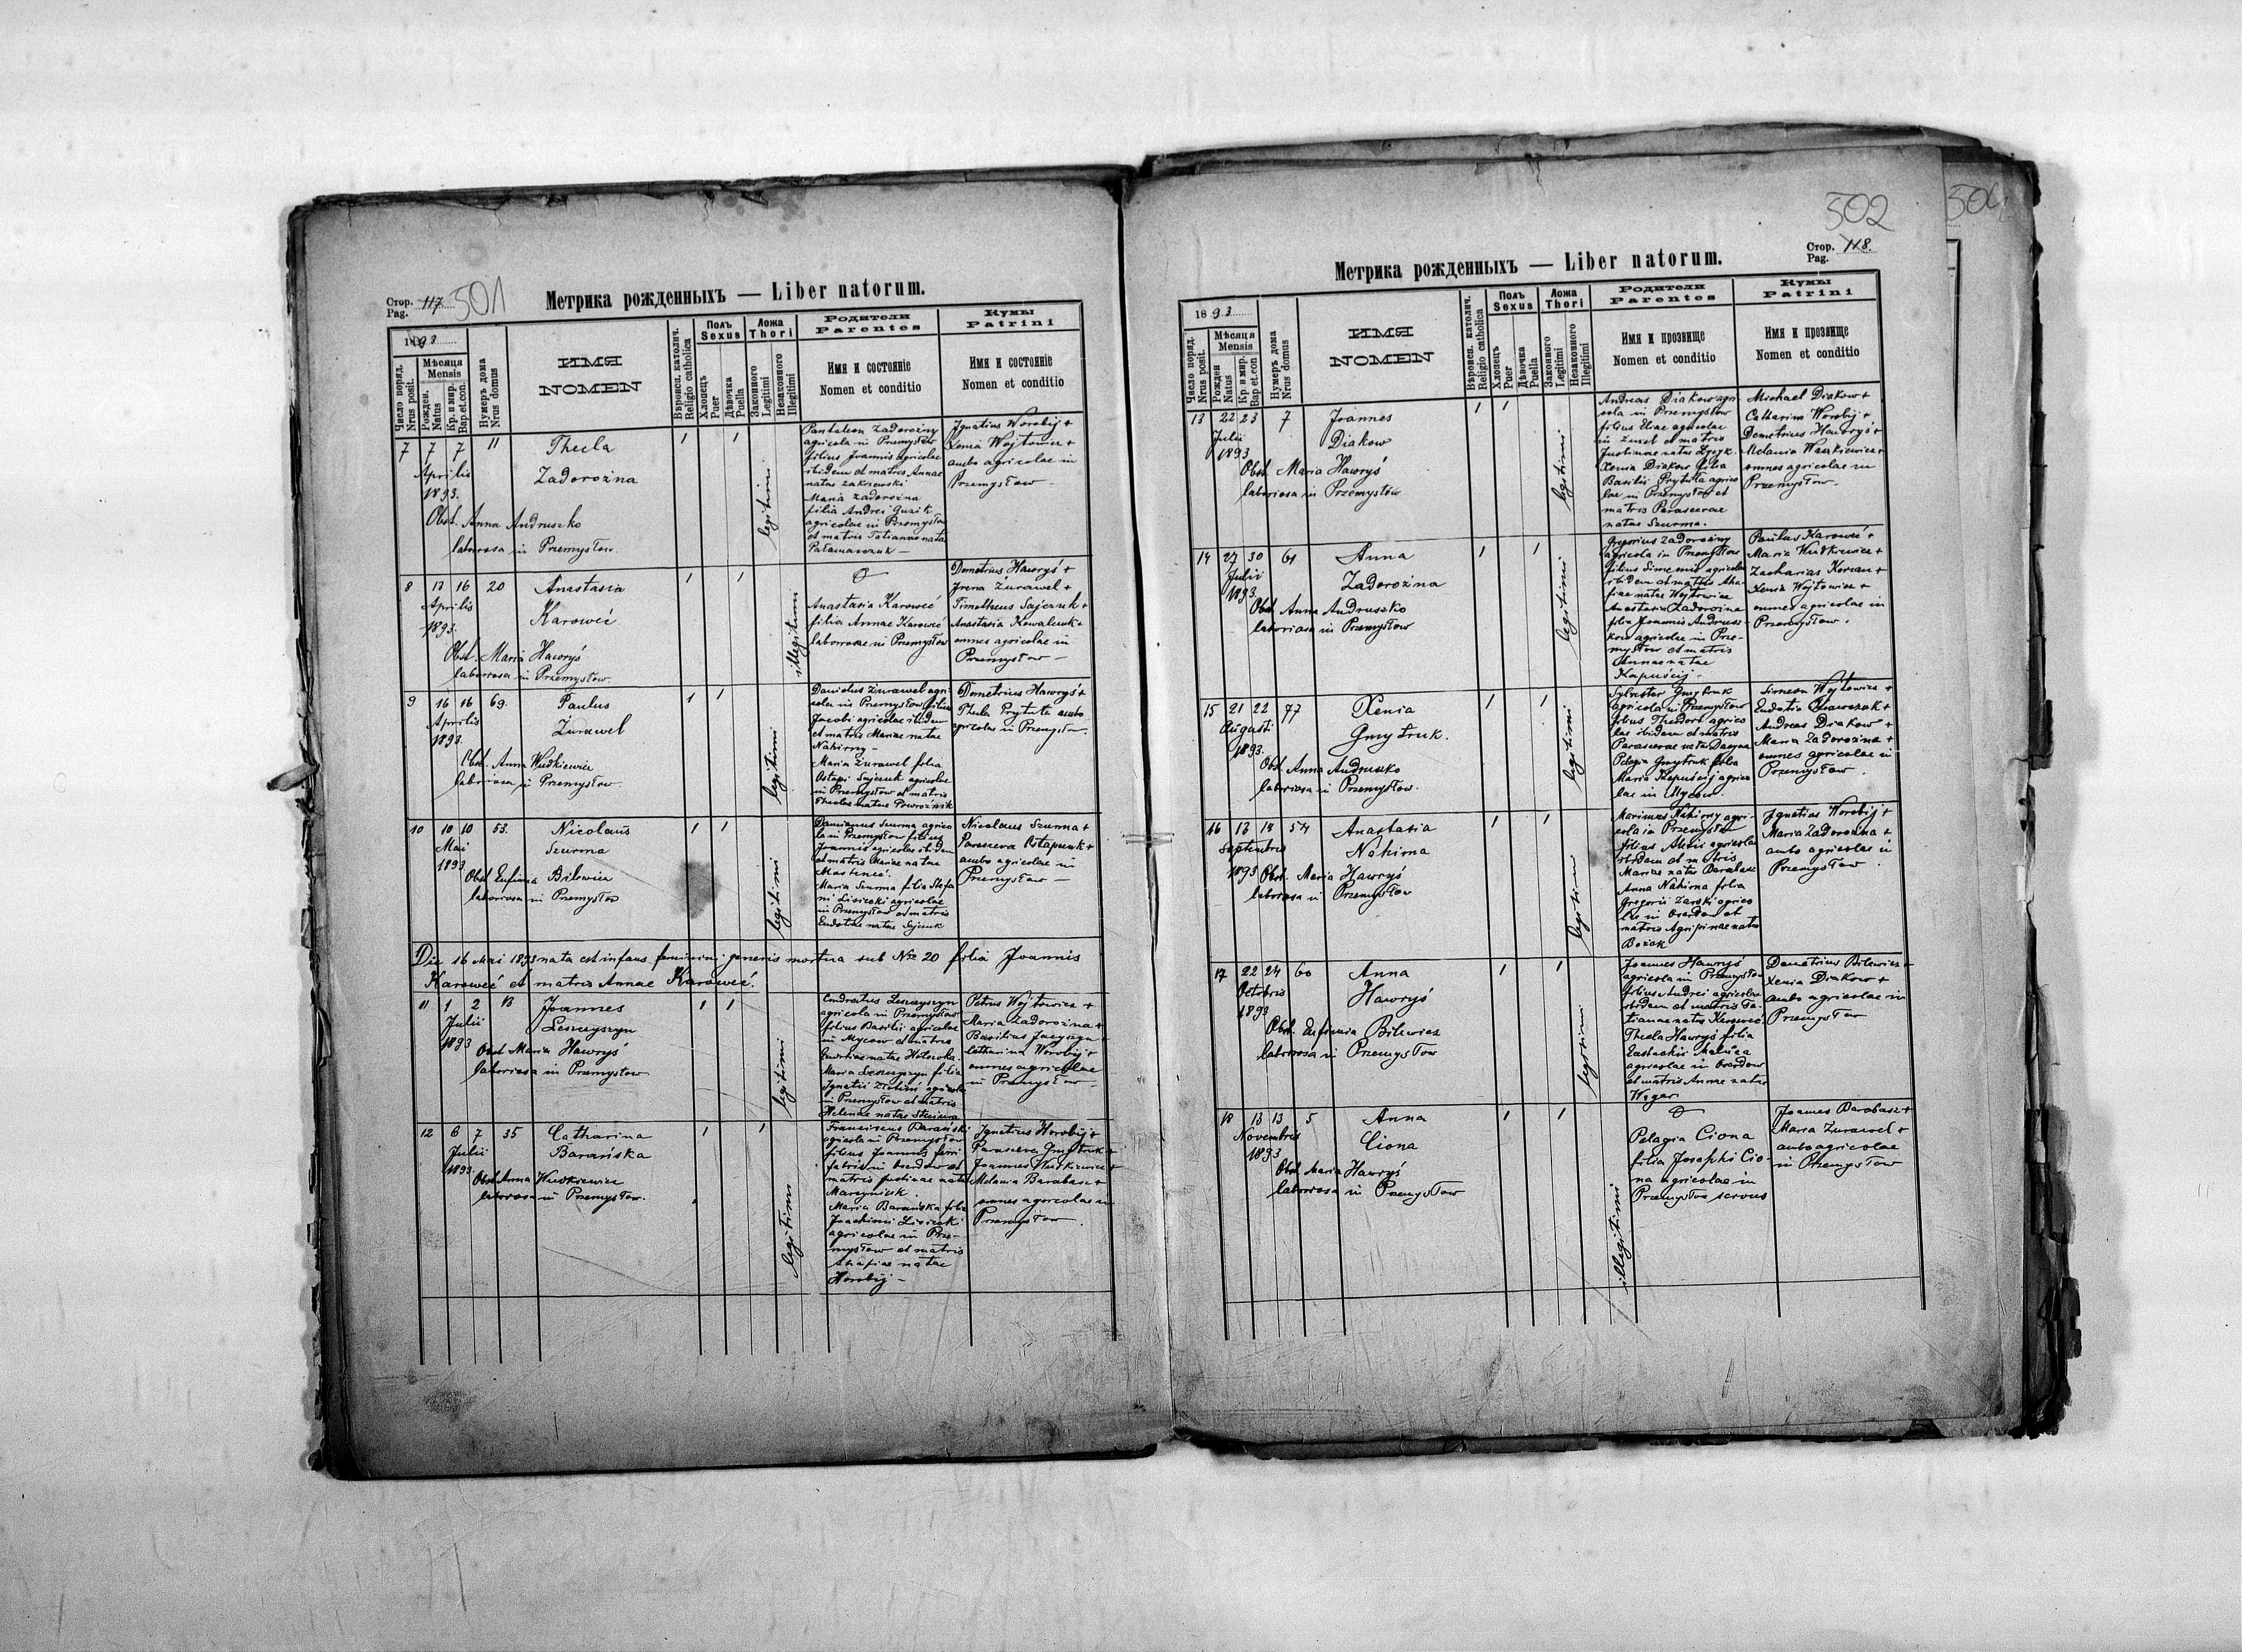 Стор. Pag. 117. 501
Метрика рожденныхъ — Liber natorum.
1893
Число поряд. Nrus posit.
Мѣсяця Mensis
Рожден. Natus
Кр. и мир. Bap et.con.
Нумеръ дома Nrus domus
ИМЯ
NOMEN
Вѣроисп. католич. Religio catholica
Полъ Sexus
Хлопецъ Puer
Дѣвочка Puella
Ложа Thori
Законного Legitimi
Незаконного Illegitimi
Родители
Parentes
Имя и состояніе
Nomen et conditio
Кумы
Patrini
Имя и состояніе
Nomen et conditio
7 7 7 11 Thecla 1 1
Aprilis Zadorożna
1893.
Obst. Anna Andruszko
laboriosa in Przemysłow.
legitimi
Pantaleon Zadorożny
agricola in Przemysłow
filius Joannis agricolae
ibidem et matris Annae
natae Zakrzewski
Maria Zadorożna
filia Andrei Guzik
agricolae in Przemysłow
et matris Tatianae natae
Pałamarczuk —
Ignatius Worobij +
Xenia Wojtowicz +
ambo agricolae in
Przemysłow —
8 13 16 20 Anastasia 1 1
Aprilis Karoweć
1893.
Obst. Maria Hawryś
laboriosa in Przemysłow.
illegitimi
Anastasia Karoweć
filia Annae Karoweć
laboriosae in Przemysłow
Demetrius Hawryś +
Irena Żurawel +
Timotheus Sajczuk +
Anastasia Kowalczuk +
omnes agricolae in
Przemysłow —
9 16 16 69. Paulus 1 1
Aprilis Żurawel
1893.
Obst. Anna Wudkiewicz
laboriosa in Przemysłow
legitimi
Danielus Żurawel agri-
cola in Przemysłow filius
Jacobi agricolae ibidem
et matris Mariae natae
Nahirny —
Maria Żurawel filia
Ostapi Sajczuk agricolae
in Przemysłow et matris
Theclae natae Powroźnik
Demetrius Hawryś +
Thecla Prytuła ambo
agricolae in Przemysłow
10 10 10 53. Nicolaus 1 1
Mai Szurma
1893
Obst. Eufimia Bilewicz
laboriosa in Przemysłow
legitimi
Damianus Szurma agrico
la in Przemysłow filius
Joannis agricolae ibidem
et matris Mariae natae
Maria Szurma filia Stefa
ni Lisiecki agricolae
in Przemysłow et matris
Eudoxiae natae Sajczuk
Nicolaus Szurma +
Parasceva Ostapczuk +
ambo agricolae in
Przemysłow —
Die 16 Mai 1893 nata est infans feminini generis mortua sub Nro 20 filia Joannis
Karoweć et matris Annae Karoweć.
11 1 2 13 Joannes 1 1
Julii Leszczyszyn
1893
Obst. Maria Hawryś
laboriosa in Przemysłow
legitimi
Leszczyszyn
agricola in Przemysłow
filius Basilii agricolae
in Mycow et matris
Maria Leszczyszyn filia
Ignatii agricolae
in Przemysłow et matris
Helenae natae
Petrus Wojtowicz +
Maria Zadorożna +
Basilius
Catharina Worobij +
omnes agricolae
in Przemysłow —
12 6 7 35 Catharina 1 1
Julii Barańska
1893.
Obst. Anna Wudkiewicz
laboriosa in Przemysłow.
legitimi
Franciscus Barański
agricola in Przemysłow
filius Joannis ferri
fabris in Oserdow et
matris Justinae natae
Maria Barańska filia
Joachimi Lisiecki
agricolae in Prze-
mysłow et matris
Ahafiae natae
Worobij —
Ignatius Worobij +
Parasceva Gmytruk +
Joannes Wudkiewicz +
Melania Barabasz +
omnes agricolae in
Przemysłow.
502
504
Стор. Pag. 118.
Метрика рожденныхъ — Liber natorum.
1893
Число поряд. Nrus posit.
Мѣсяця Mensis
Рожден Natus
Кр. и мир. Bap et.con
Нумеръ дома Nrus domus
ИМЯ
NOMEN
Вѣроисп. католич. Religio catholica
Полъ Sexus
Хлопецъ Puer
Дѣвочка Puella
Ложа Thori
Законного Legitimi
Незаконного Illegitimi
Родители
Parentes
Имя и прозвище
Nomen et conditio
Кумы
Patrini
Имя и прозвище
Nomen et conditio
13 22 23 7 Joannes 1 1
Julii Diakow
1893
Obst. Maria Hawryś
laboriosa in Przemysłow
legitimi
Andreas Diakow agri
cola in Przemysłow
filius Eliae agricolae
in Żuzel et matris
Justinae natae
Xenia Diakow filia
Basilii Prytuła agrico
lae in Przemysłow et
matris Parascevae
natae Szurma.
Michael Diakow +
Catharina Worobij +
Demetrius Hawryś +
Melania Waszkiewicz +
omnes agricolae in
Przemysłow —
14 27 30 61 Anna 1 1
Julii Zadorożna
1893.
Obst. Anna Andruszko
laboriosa in Przemysłow
legitimi
Gregorius Zadorożny
agricola in Przemysłow
filius Simeonis agricolae
ibidem et matris Aha-
fiae natae Wojtowicz
Anastasia Zadorożna
filia Joannis Andrusz-
kow agricolae in Prze-
mysłow et matris
Annae natae
Kapuścij —
Paulus Karoweć +
Maria Wudkiewicz +
Zacharias Korzan +
Xenia Wojtowicz +
omnes agricolae in
Przemysłow.
15 21 22 77 Xenia 1 1
Augusti Gmytruk.
1893.
Obst. Anna Andruszko
laboriosa in Przemysłow.
legitimi
Sylvester Gmytruk
agricola in Przemysłow
filius Theodori agrico
lae ibidem et matris
Parascevae natae
Pelagia Gmytruk filia
Maria Kapuścij agrico
lae in Mycow.
Simeon Wojtowicz +
Eudoxia Krawczuk +
Andreas Diakow +
Maria Zadorożna +
omnes agricolae in
Przemysłow.
16 13 14 54 Anastasia 1 1
Septembris Nahirna
1893
Obst. Maria Hawryś
laboriosa in Przemysłow
legitimi
Marinus Nahirny agri-
cola in Przemysłow
filius Alexii agricolae
ibidem et matris
Mariae natae Barabasz
Anna Nahirna filia
Gregorii Żarski agrico
lae in Oserdow et
matris Agripinae natae
Bożek
Ignatius Worobij +
Maria Zadorożna +
ambo agricolae in
Przemysłow.
17 22 24 60 Anna 1 1
Octobris Hawryś
1893
Obst. Eufimia Bilewicz
laboriosa in Przemysłow
legitimi
Joannes Hawryś
agricola in Przemysłow
filius Andrei agricolae
ibidem et matris Ta-
tianae natae Karoweć
Thecla Hawryś filia
Eustachii
agricolae in Oserdow
et matris Annae natae
Joannes
Demetrius Bilewicz +
Xenia Diakow +
ambo agricolae in
Przemysłow
18 13 13 5 Anna 1 1
Novembris Ciona
1893
Obst. Maria Hawryś
laboriosa in Przemysłow
illegitimi
Pelagia Ciona
filia Josaphi Cio-
na agricolae in
Przemysłow
Joannes Barabasz +
Maria Żurawel +
ambo agricolae
in Przemysłow